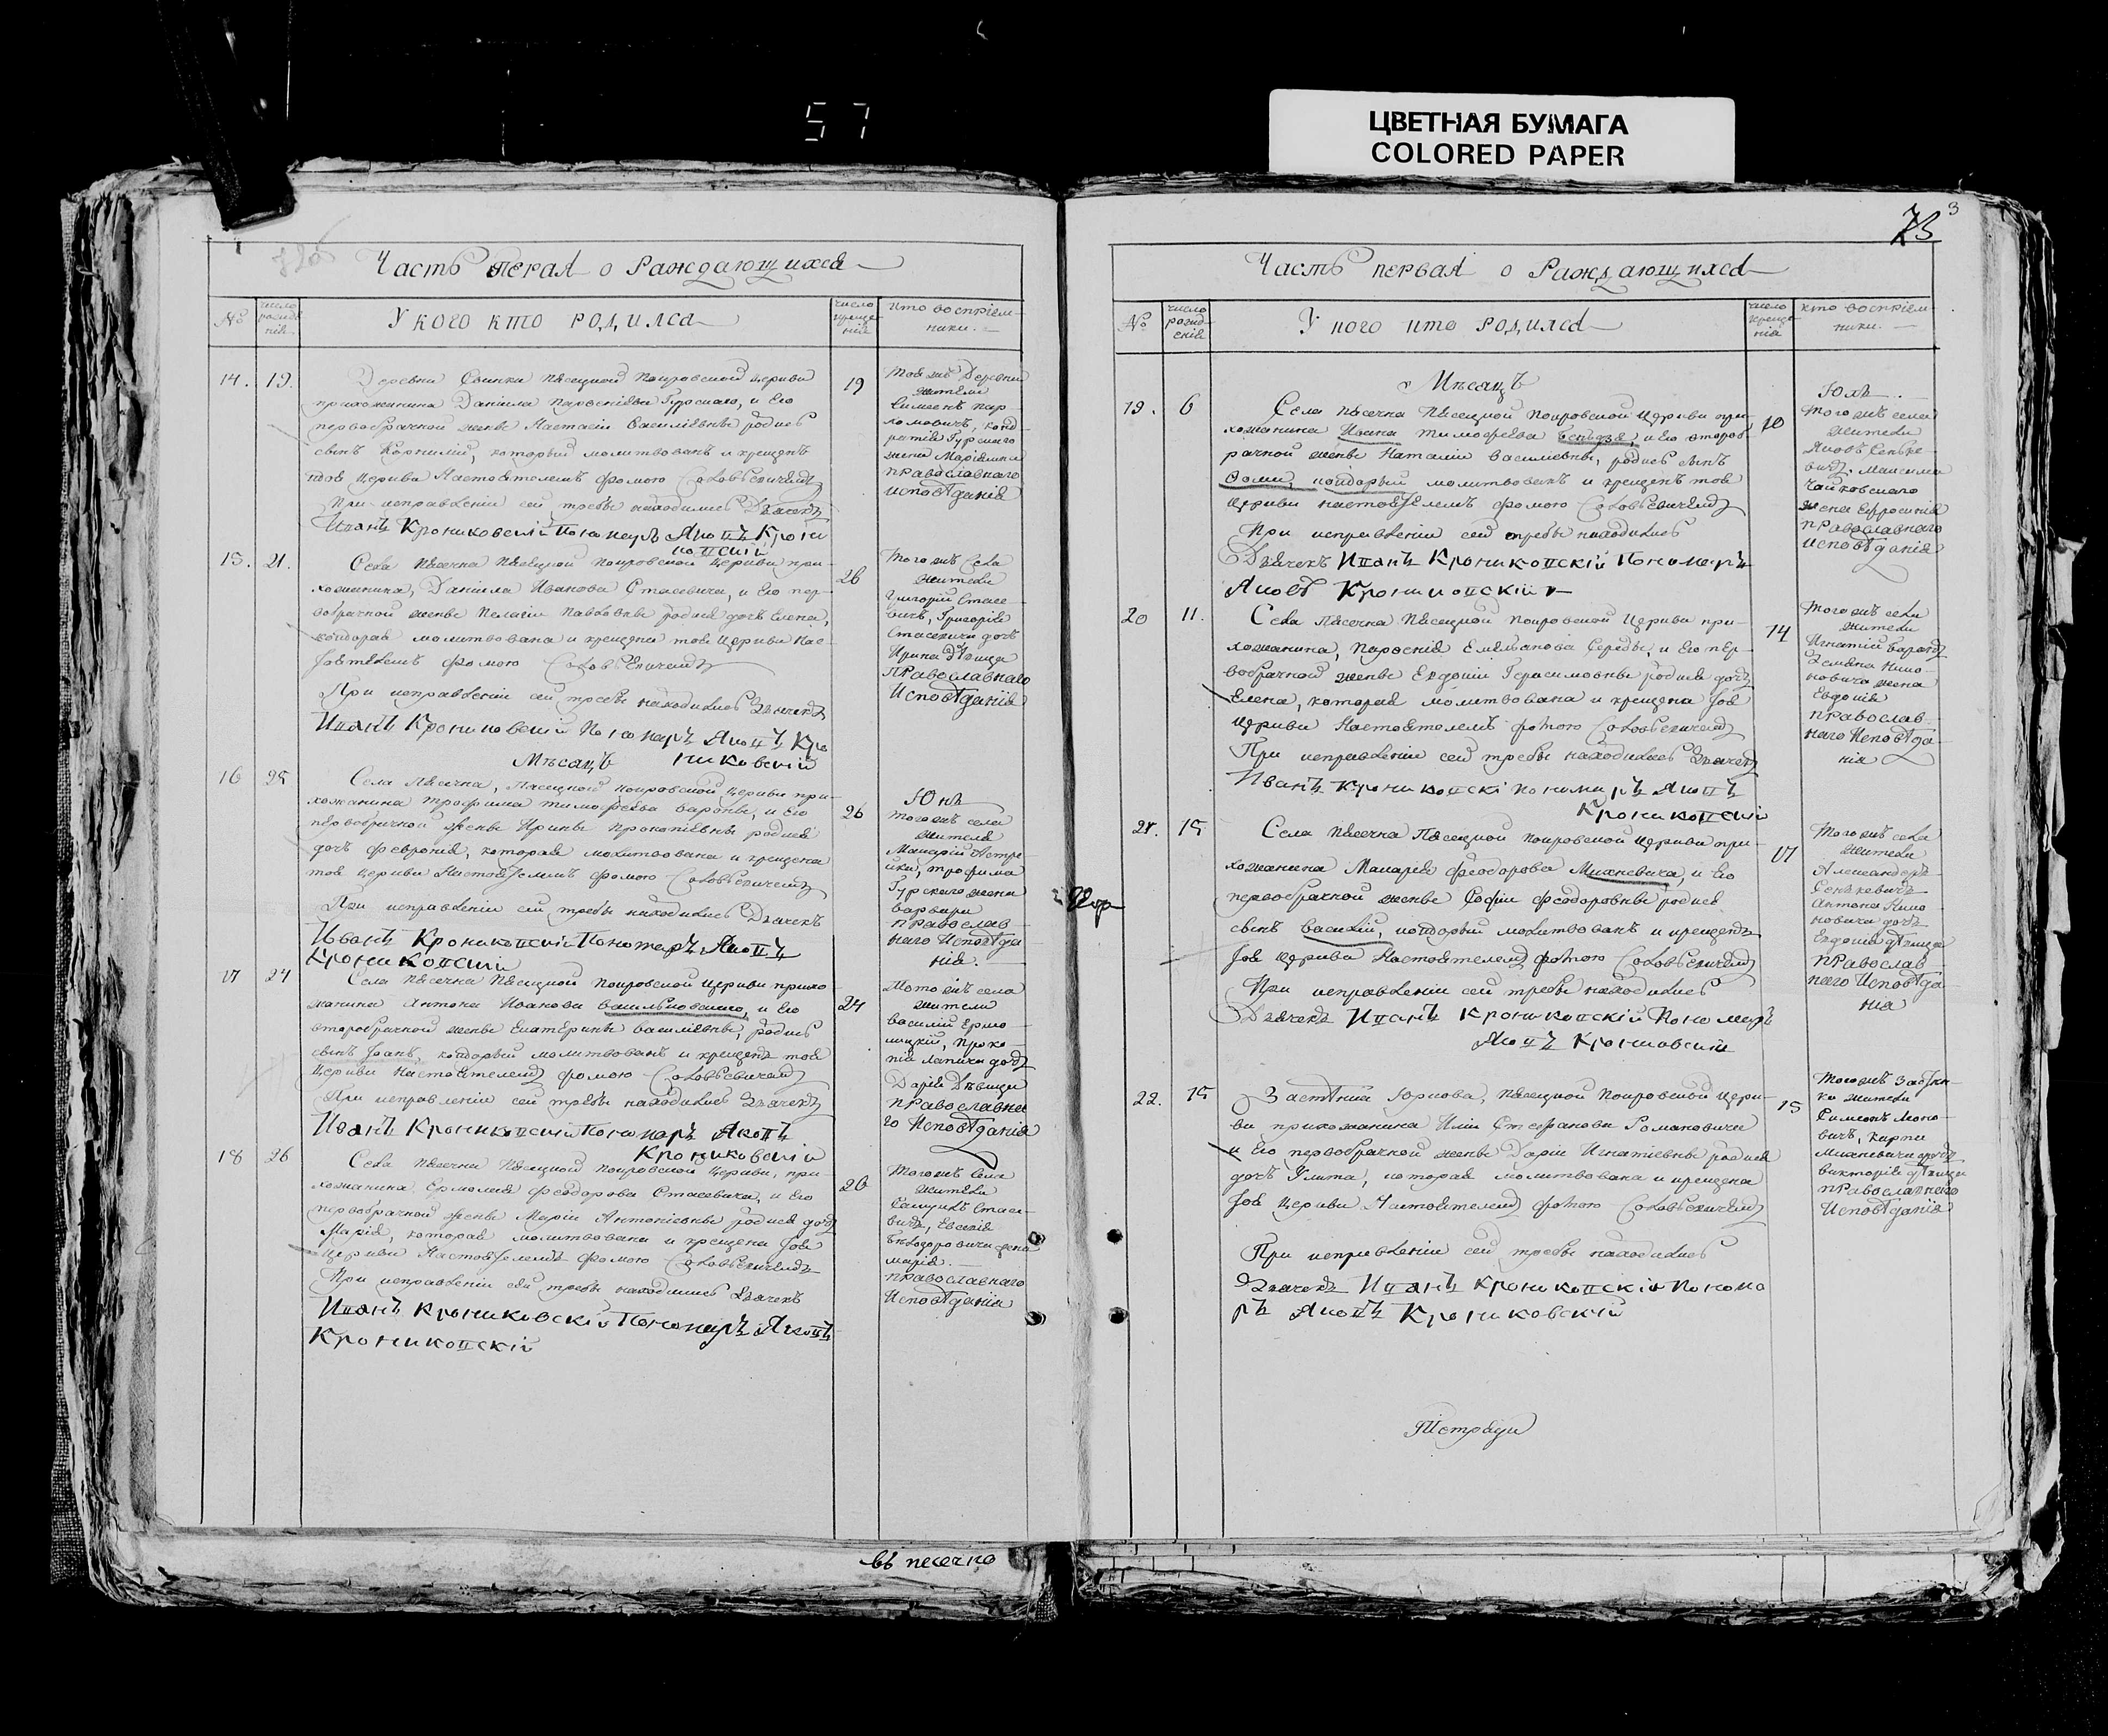 57
ЦВЕТНАЯ БУМАГА
COLORED PAPER
73
3
Часть перая о Раждающихся
№
число рожде нія.
У кого кто родился
число креще нія
кто воспріем-
ники.
14. 19.
Деревни Свинки Пѣсецкой Покровской церкви
прихожанина Даніила Парѳеніева Гурскаго, и Его
первобрачной жены Настасіи Василіевны родися
сынъ Корнилій, который молитвованъ и крещенъ
тоя церкви Настоятелемъ Фомою Соловьевичемъ
При исправленіи сей требы находились Дьячекъ
Иванъ Крониковскій Пономарь Яковъ Крони
ковскій
19
Тоя жъ Деревни
жители
Симеонъ Пар
хомовичъ, Конд
ратія Гурскаго
жена Маріямна
православнаго
исповѣданія
15. 21.
Села Пѣсечна Пѣсецкой Покровской церкви при-
хожанина, Даніила Иванова Стасевича, и Его пер-
вобрачной жены Пелагіи Павловны родися дочь Елена,
которая молитвована и крещена тоя Церкви Нас-
тоятелемъ Фомою Соловьевичемъ
При исправленіи сей требы находились Дьячекъ
Иванъ Крониковскій Пономарь Яковъ Кро
никовскій
26
Того жъ Села
жители
Григорій Стасе-
вичъ, Григорія
Стасевича дочь
Ирина дѣвица
Православнаго
Исповѣданія
Мѣсяцъ
Юнь
16 25
Села Пѣсечна, Пѣсецкой Покровской церкви при-
хожанина Трофима Тимофеева Вароны, и Его
первобрачной жены Ирины Прокопіевны родися
дочь Февронія, которая молитвована и крещена
тоя церкви Настоятелемъ Фомою Соловьевичемъ
При исправленіи сей требы находились Дьячекъ
Иванъ Крониковскій Пономарь Яковъ
Крониковскій
26
того жъ села
жители
Макарій
Трофима
Гурскаго жена
Варвара
Православ-
наго Исповѣда
нія.
17 24
Села Пѣсечна Пѣсецкой Покровской церкви прихо
жанина Антона Иванова Васильковскаго, и Его
второбрачной жены Екатерины Василіевны, родися
сынъ Іоанъ, который молитвованъ и крещенъ тоя
Церкви Настоятелемъ Фомою Соловьевичемъ
При исправленіи сей требы находились Дьячекъ
Иванъ Крониковскій Пономарь Яковъ
Крониковскій
24
Того жъ села
жители
Василій Ермо-
лицкій, Проко-
пія Лапики дочь
Дарія Дѣвица
православна
го Исповѣданія
18 26
Села Пѣсечна Пѣсецкой Покровской церкви, при-
хожанина Ермолая Феодорова Стасевича, и Его
первобрачной жены Маріи Антоніевны родися дочь
Марія, которая молитвована и крещена тоя
Церкви Настоятелемъ Фомою Соловьевичемъ
При исправленіи сей требы находились Дьячекъ
Иванъ Крониковскій Пономарь Яковъ
Крониковскій
26
Того жъ села
жители
Стасе-
вичъ, Евсевія
жена
Марія.
православнаго
Исповѣданія
въ песечно
Часть первая о Раждающихся
№
число рожд- енія
У кого кто родился
число креще- нія
кто воспріем-
ники.
Мѣсяцъ
Юль
19. 6
Села Пѣсечна Пѣсецкой Покровской Церкви при-
хожанина Ивана Тимофеева и Его второб-
рачной жены Наталіи Василіевны, родися сынъ
Фома, который молитвованъ и крещенъ тоя
Церкви настоятелемъ Фомою Соловьевичемъ
При исправленіи сей требы находились
Дьячекъ Иванъ Крониковскій Пономарь
Яковъ Крониковскій
10
Того жъ села
жители
Яковъ Сенке-
вичъ, Максима
Чайковскаго
жена Ефросинія
православнаго
исповѣданія
20 11.
Села Пѣсечна Пѣсецкой Покровской Церкви при-
хожанина, Парѳенія Емеліанова Середы, и Его пер-
вобрачной жены Евдокіи Герасимовны родися дочь
Елена, которая молитвована и крещена тоя
Церкви Настоятелемъ Фомою Соловьевичемъ
При исправленіи сей требы находились Дьячекъ
Иванъ Крониковскі Пономарь Яковъ
Крониковскій
14
Того жъ села
жители
Игнатій
жена
Евдокія
православ-
наго Исповѣда-
нія
21. 15
Села Пѣсечна Пѣсецкой Покровской церкви при-
хожанина Макарія Феодорова Михневича, и Его
первобрачной жены Софіи Феодоровны родися
сынъ Василій, который молитвованъ и крещенъ
тоя Церкви Настоятелемъ Фомою Соловьевичемъ
При исправленіи сей требы находились
Дьячекъ Иванъ Крониковскій Пономарь
Яковъ Крониовскій
17
Того жъ села
жители
Александръ
Сенкевичъ
Антона Кимо-
новича дочь
Евдокія дѣвица
православ-
наго Исповѣда-
нія
22. 15
Застѣнка Юркова, Пѣсецкой Покровской Церк-
ви прихожанина Иліи Стефанова Романовича
и Его первобрачной жены Даріи Игнатіевны родися
дочь Улита, которая молитвована и крещена
тоя Церкви Настоятелемъ Фомою Соловьевичемъ
При исправленіи сей требы находились
Дьячекъ Иванъ Крониковскій Пономо
рь Яковъ Крониковскій
15
Того жъ Застѣн-
ка жители
Симеонъ
Карпа
Михневича дочь
Викторія дѣвица
православнаго
Исповѣданія